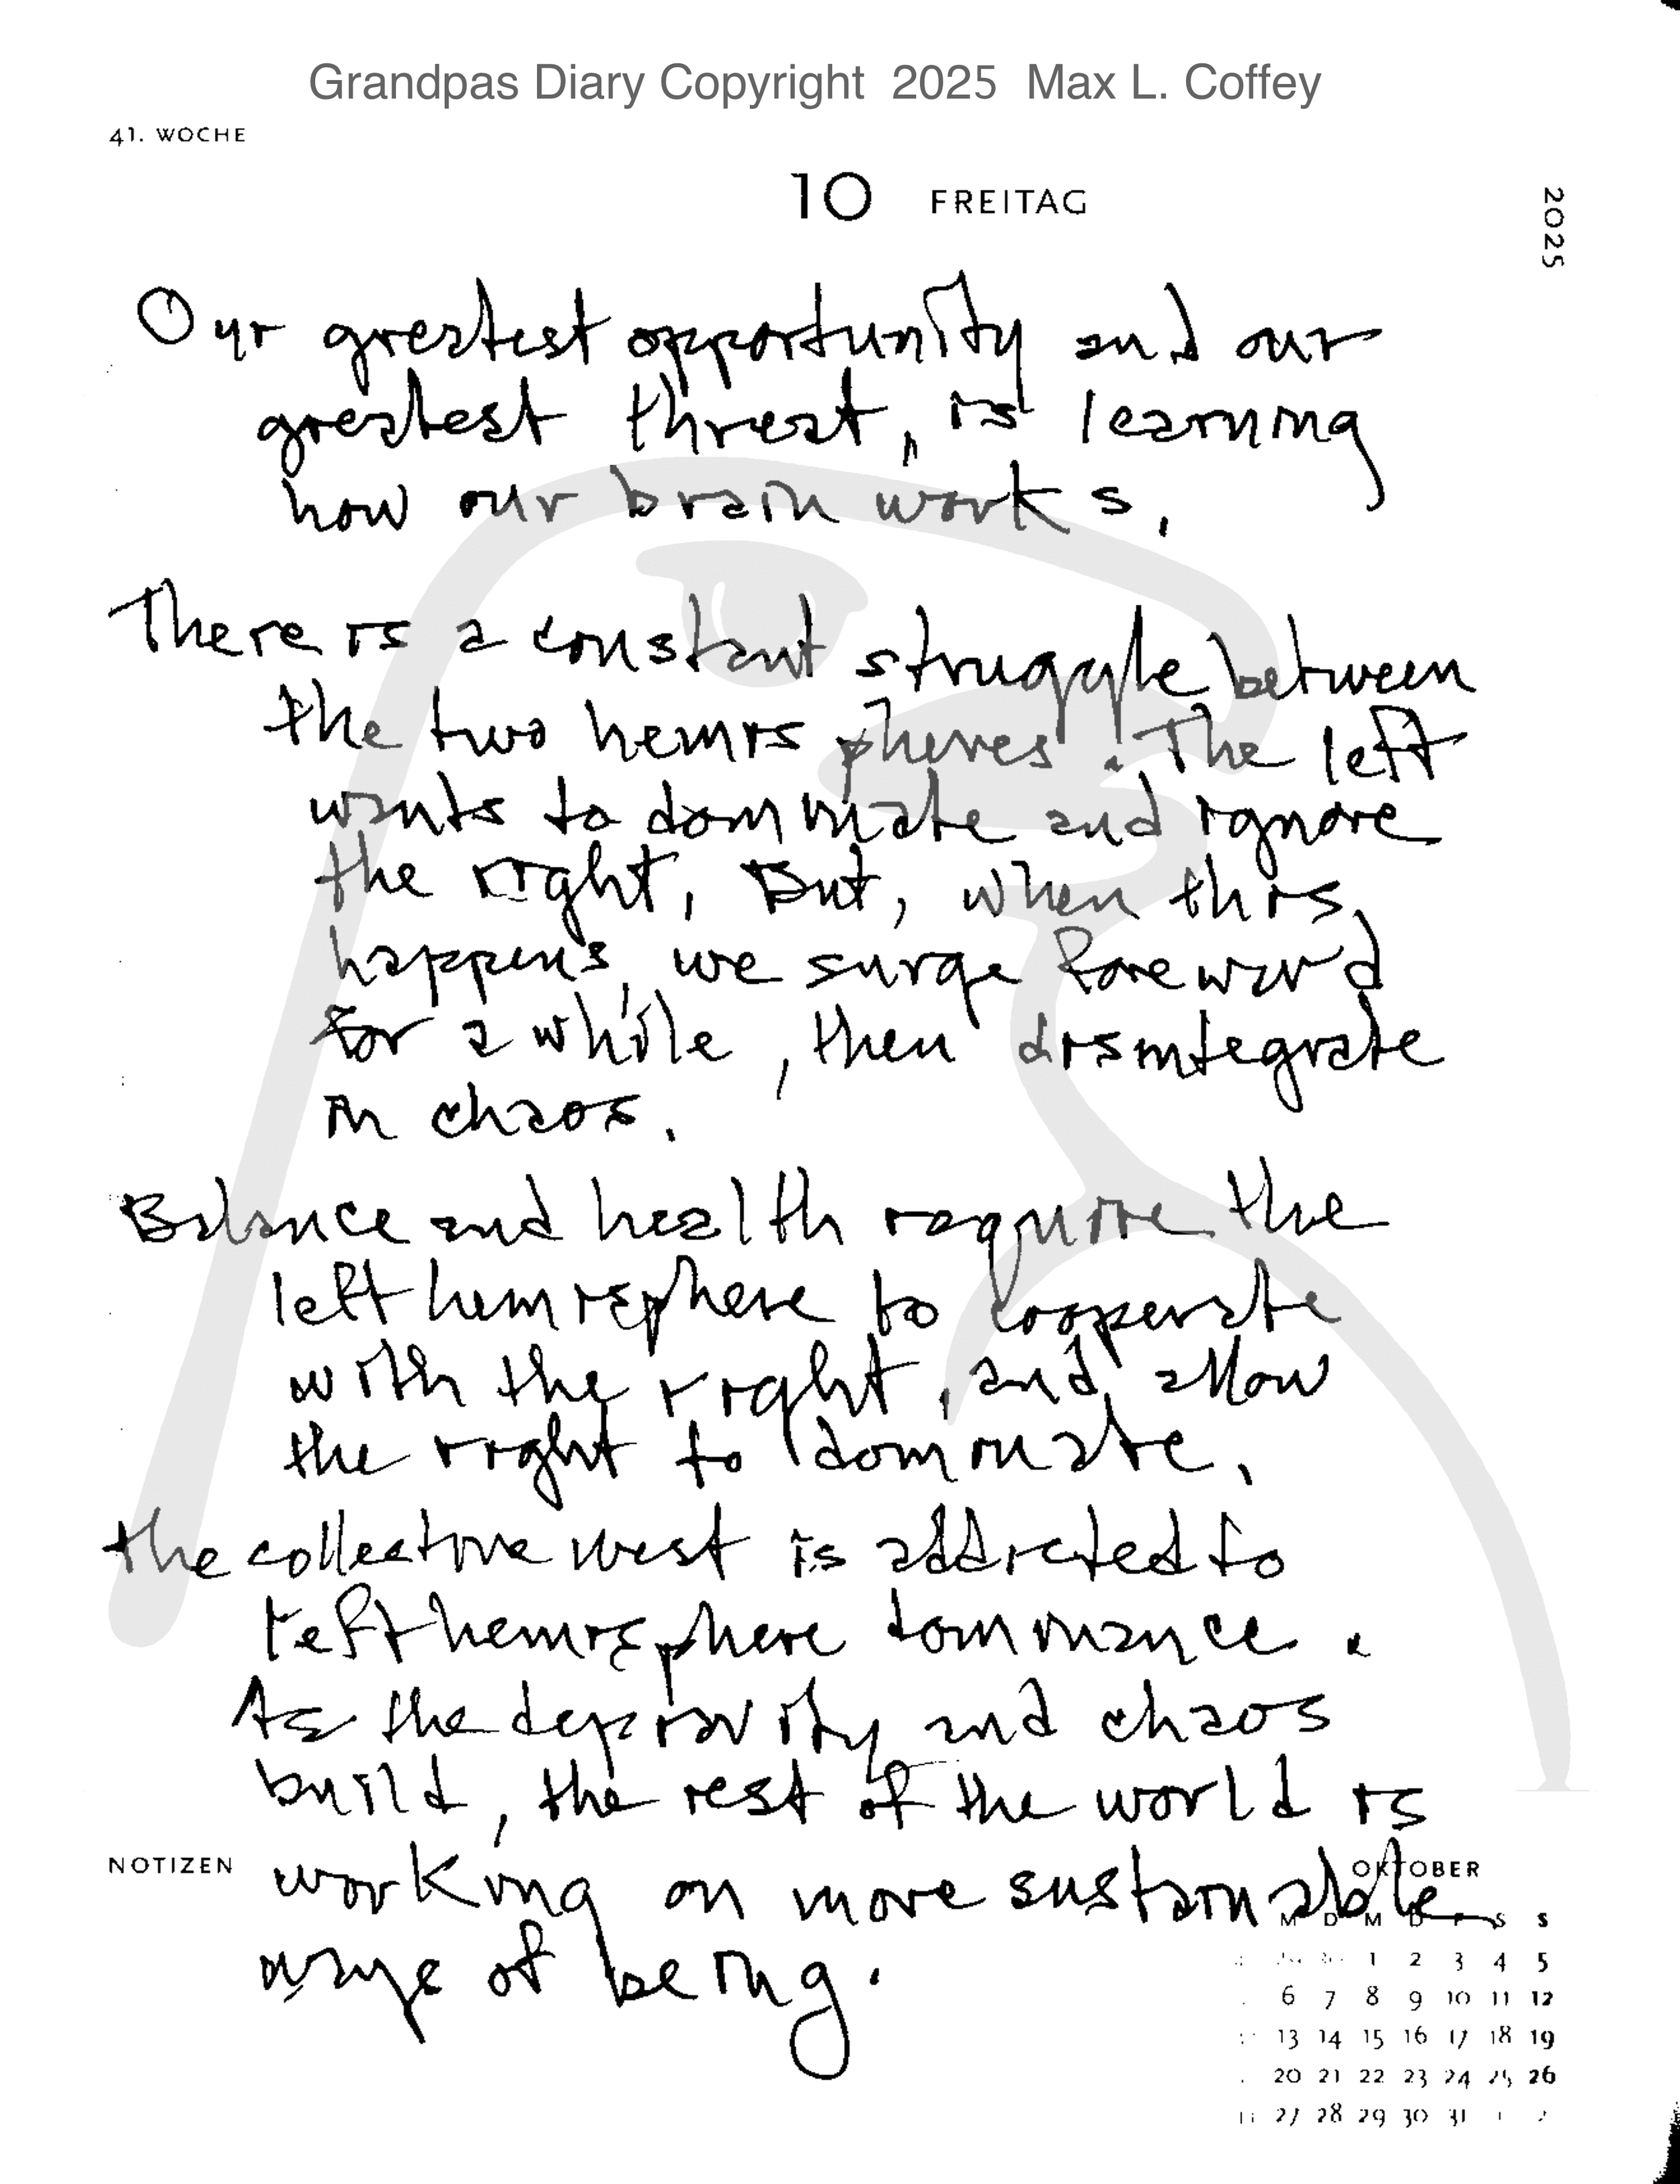 Grandpas Diary Copyright 2025 Max L. Coffey
41. WOCHE
10 FREITAG
2025
Our greatest opportunity and our
greatest threat, is learning
how our brain works.
There is a constant struggle between
the two hemispheres! The left
wants to dominate and ignore
the right, But, when this
happens, we surge foreward
for a while, then disintegrate
in chaos.
Balance and health require the
left hemisphere to cooperate
with the right, and allow
the right to dominate.
the collective west is addicted to
left hemisphere dominance.
As the depravity and chaos
build, the rest of the world is
working on more sustainable
ways of being.
NOTIZEN
OKTOBER
M D M D F S S
1 2 3 4 5
6 7 8 9 10 11 12
13 14 15 16 17 18 19
20 21 22 23 24 25 26
27 28 29 30 31 1 2